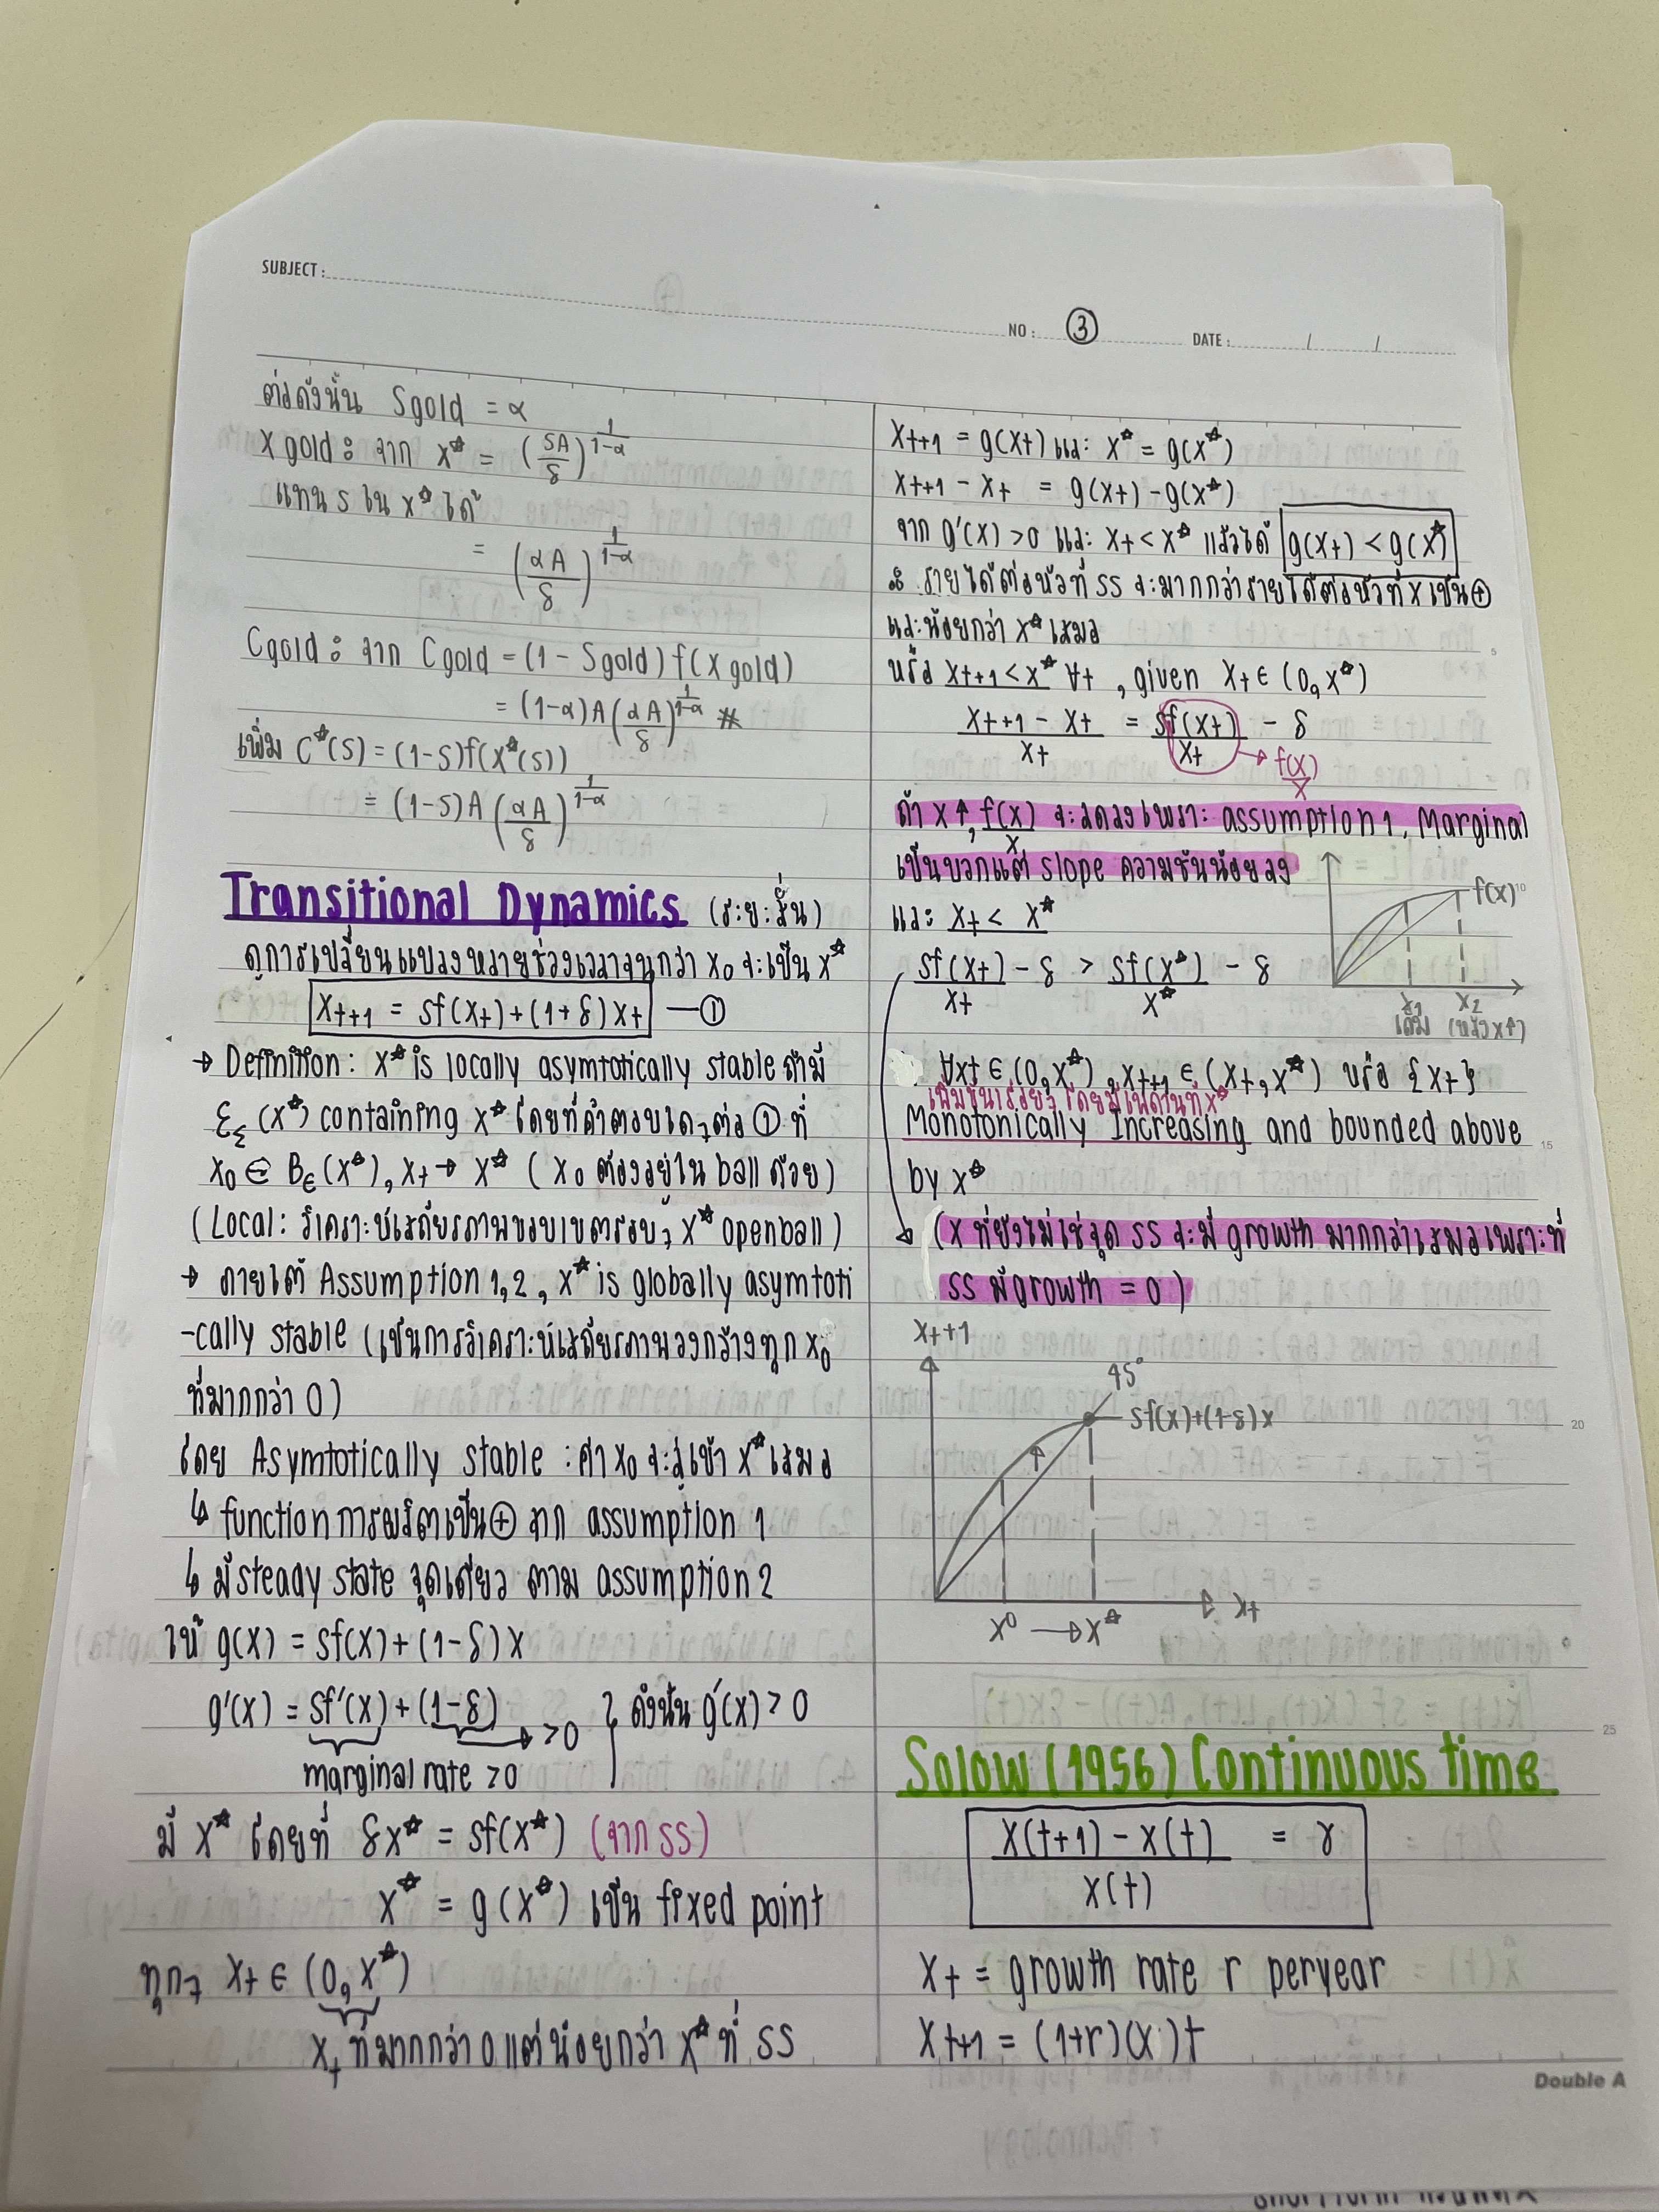 SUBJECT :
NO : ③ DATE : / /
ต่อดังนั้น Sgold = α
X gold : จาก x* = (SA/δ)^(1/(1-α))
แทน S ใน x* ได้
= (αA/δ)^(1/(1-α))
Cgold : จาก Cgold = (1 - Sgold) f(x gold)
= (1-α)A(αA/δ)^(1/(1-α)) #
เพิ่ม C*(S) = (1-S)f(x*(S))
= (1-S)A(αA/δ)^(1/(1-α))
Transitional Dynamics (ระยะสั้น)
ดูการเปลี่ยนแปลงหลายช่วงเวลาจนกว่า x₀ จะเป็น x*
xt+1 = sf(xt)+(1+δ)xt — ①
→ Definition : x* is locally asymtotically stable ถ้ามี
ξξ (x*) containing x* โดยที่คำตอบใดๆต่อ ① ที่
x₀ ∈ Bϵ(x*), xt → x* ( x₀ ต้องอยู่ใน ball ด้วย)
(Local : วิเคราะห์เสถียรภาพขอบเขตรอบๆ x* openball)
→ ภายใต้ Assumption 1,2 , x* is globally asymtoti
-cally stable (เป็นการวิเคราะห์เสถียรภาพวงกว้างทุก x₀
ที่มากกว่า 0)
โดย Asymtotically stable : ค่า x₀ จะลู่เข้า x* เสมอ
↳ function การผลิตเป็น ⊕ จาก assumption 1
↳ มี steady state จุดเดียว ตาม assumption 2
ให้ g(x) = sf(x) + (1-δ)x
g'(x) = sf'(x) + (1-δ) ดังนั้น g'(x) > 0
→ >0
marginal rate >0
มี x* โดยที่ δx* = sf(x*) (จาก SS)
x* = g(x*) เป็น fixed point
ทุกๆ xt ∈ (0, x*)
xt ที่มากกว่า 0 แต่น้อยกว่า x* ที่ SS
xt+1 = g(xt) และ x* = g(x*)
xt+1 - xt = g(xt) - g(x*)
จาก g'(x) >0 และ xt < x* แล้วได้ g(xt) < g(x*)
∴ รายได้ต่อหัวที่ SS จะมากกว่ารายได้ต่อหัวที่ x เป็น ⊕
และน้อยกว่า x* เสมอ
หรือ xt+1 < x* ∀t , given xt ∈ (0, x*)
(xt+1 - xt)/xt = sf(xt)/xt - δ
→ f(x)/x
ถ้า x ↑, f(x)/x จะลดลงเพราะ assumption 1, Marginal
เป็นบวกแต่ slope ความชันน้อยลง
f(x)
และ xt < x*
sf(xt)/xt - δ > sf(x*)/x* - δ
x₁ x₂
เดิม (หลัง x↑)
∀xt ∈ (0, x*), xt+1 ∈ (xt, x*) หรือ {xt}
เพิ่มขึ้นเรื่อยๆ โดยมีเพดานที่ x*
Monotonically Increasing and bounded above
by x*
(x ที่ยังไม่ใช่จุด SS จะมี growth มากกว่าเสมอเพราะที่
SS มี growth = 0)
xt+1
45°
sf(x)+(1-δ)x
x⁰ → x* xt
Solow (1956) Continuous time
(X(t+1) - X(t))/X(t) = γ
Xt = growth rate r peryear
Xt+1 = (1+r)(x)t
Double A